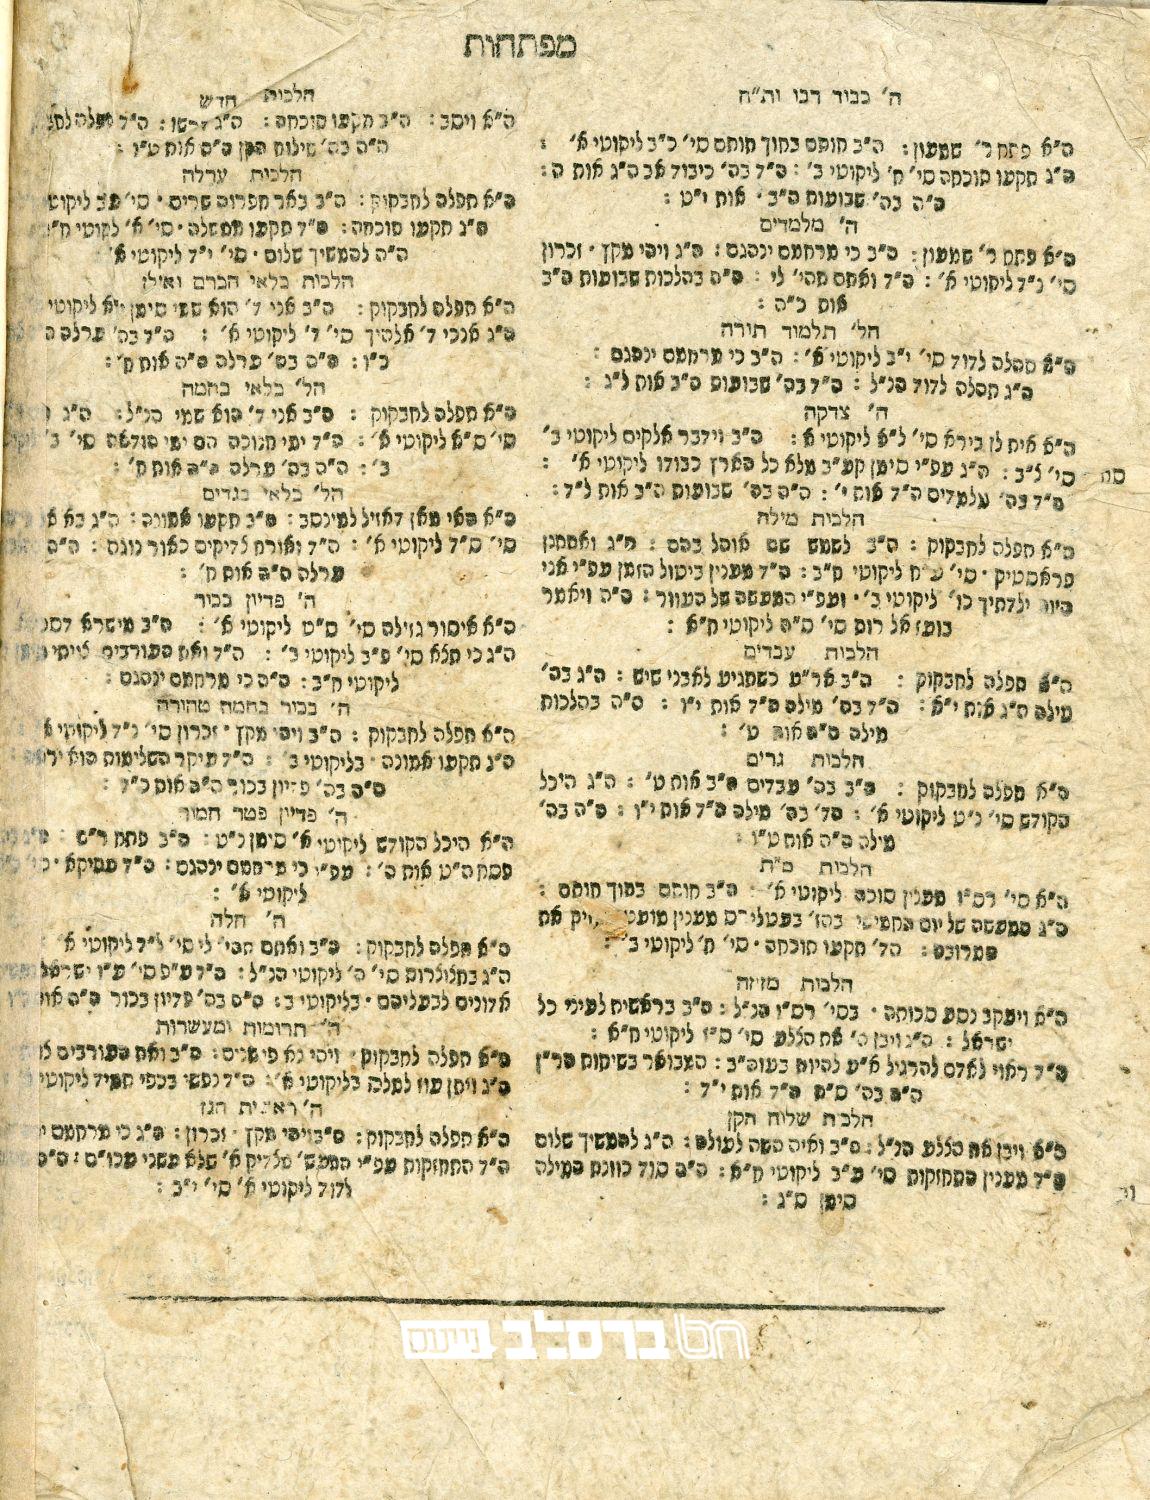 מפתחות
ה׳ כבוד רבו ות״ח
ה״א פתח ר׳ שמעון : ה״ב חותם בתוך חותם סי׳ כ״ב ליקוטי א׳ :
ה״ג תקעו תוכחה סי׳ ח׳ ליקוטי ב׳ : ה״ד בה׳ כיבוד אב ה״ג אות ה :
ה״ה בה׳ שבועות ה״ב ׳ אות י״ט :
ה׳ מלמדים
ה״א פתח ר׳ שמעון : ה״ב כי מרחמם ינהגם : ה״ג ויהי מקץ ׳ זכרון
סי׳ נ״ד ליקוטי א׳ : ה״ד ואתם תהי׳ לי : ה״ה בהלכות שבועות ה״ב
אות כ״ה :
הל׳ תלמוד תורה
ה״א תהלה לדוד סי׳ י״ב ליקוטי א׳ : ה״ב כי מרחמם ינהגם :
ה״ג תהלה לדוד הנ״ל : ה״ד בה׳ שבועות ה״ב אות ל״ג :
ה׳ צדקה
ה״א אית לן בירא סי׳ ל״א ליקוטי א : ה״ב וידבר אלקים ליקוטי ב׳
סי׳ ל״ב : ה״ג עפ״י סימן קע״ב מלא כל הארץ כבודו ליקוטי א׳ :
ה״ד בה׳ מלמדים ה״ד אות י׳ : ה״ה בה׳ שבועות ה״ב אות ל״ד :
הלכות מילה
ה״א תפלה לחבקוק : ה״ב לשמש שם אוהל בהם : ה״ג ואתחנן
פראסטיק ׳ סי׳ ע״ח ליקוטי ח״ב : ה״ד מענין ביטול הזמן עפ״י אני
היום ילדתיך כו׳ ליקוטי ב׳ ׳ ועפ״י המעשה של העוור : ה״ה ויאמר
בועז אל רות סי׳ ס״ה ליקוטי ח״א :
הלכות עבדים
ה״א תפלה לחבקוק : ה״ב אר״ע כשתגיע לאבני שיש : ה״ג בה׳
מילה ה״ג אות י״א : ה״ד בה׳ מילה ה״ד אות י״ו : ה״ה בהלכות
מילה ה״ה אות ט׳ :
הלכות גרים
ה״א תפלה לחבקוק : ה״ב בה׳ עבדים ה״ב אות ט׳ : ה״ג היכל
הקודש סי׳ נ״ט ליקוטי א׳ : הד׳ בה׳ מילה ה״ד אות י״ו : ה״ה בה׳
מילה ה״ה אות ט״ו :
הלכות ס״ת
ה״א סי׳ רס״ו מענין סוכה ליקוטי א׳ : ה״ב חותם בתוך חותם :
ה״ג המעשה של יום החמישי בהז׳ בעטלירס מענין מועט
המרובה : הד׳ תקעו תוכחה ׳ סי׳ ח׳ ליקוטי ב׳ :
הלכות מזוזה
ה״א ויעקב נסע סכותה ׳ בסי׳ רס״ו הנ״ל : ה״ב בראשית לעיני כל
ישראל : ה״ג ויבן ה׳ את הצלע סי׳ ס״ז ליקוטי ח״א :
ה״ד ראוי לאדם להרגיל א״ע להיות בעוה״ב : המבואר בשיחות הר״ן
ה״ה בה׳ ס״ת ה״ד אות י״ד :
הלכת שלוח הקן
ה״א ויבן את הצלע הנ״ל : ה״ב ואיה השה לעולה : ה״ג להמשיך שלום
ה״ד מענין התחזקות סי׳ ע״ב ליקוטי ח״א : ה״ה סוד כוונת המילה
סימן ס״ג :
הלכות חדש
ה״א ויסב : ה״ב תקעו תוכחה : ה״ג דרשו : ה״ד תפלה
ה״ה בה׳ שילוח הקן ה״ה אות ט״ו :
הלכות ערלה
ה״א תפלה לחבקוק : ה״ב באר חפרוה שרים ׳
ה״ג תקעו תוכחה : ה״ד תקעו ממשלה ׳ סי׳ א׳ לקוטי
ה״ה להמשיך שלום ׳ סי׳ י״ד ליקוטי א׳
הלכות כלאי הכרם ואילן
ה״א תפלה לחבקוק : ה״ב אני ד׳ הוא שמי סימן י״א ליקוטי
ה״ג אנכי ד׳ אלהיך סי׳ ד׳ ליקוטי א׳ : ה״ד בה׳ ערלה ה
כ״ו : ה״ה בה׳ ערלה ה״ה אות ח׳ :
הל׳ כלאי בהמה
ה״א תפלה לחבקוק : ה״ב אני ד׳ הוא שמי הנ״ל : ה״ג
סי׳ ס״א ליקוטי א׳ : ה״ד ימי חנוכה הם ימי הודאה סי׳ ב׳
ב׳ : ה״ה בה׳ ערלה ה״ה אות ח׳ :
הל׳ כלאי בגדים
ה״א האי מאן דאזיל למינסב : ה״ב תקעו אמונה : ה״ג בא
סי׳ ס״ד ליקוטי א׳ : ה״ד ואורח צדיקים כאור נוגה : ה״ה
ערלה ה״ה אות ח׳ :
ה׳ פדיון בכור
ה״א איסור גזילה סי׳ ס״ט ליקוטי א׳ : ה״ב מישרא
ה״ג כי תצא סי׳ פ״ב ליקוטי ב׳ : ה״ד ואת העורבים צויתי
ליקוטי ח״ב : ה״ה כי מרחמם ינהגם :
ה׳ בכור בהמה טהורה
ה״א תפלה לחבקוק : ה״ב ויהי מקץ ׳ זכרון סי׳ נ״ד ליקוטי א
ה״ג תקעו אמונה ׳ בליקוטי ב׳ : ה״ד עיקר השלימות הוא
ה״ה בה׳ פדיון בכור ה״ה אות כ״ד :
ה׳ פדיון פטר חמור
ה״א היכל הקודש ליקוטי א׳ סימן נ״ט : ה״ב פתח ר״ש :
פסח ה״ט אות ה׳ : עפ״י כי מרחמם ינהגם : ה״ד עתיקא ׳
ליקוטי א׳ :
ה׳ חלה
ה״א תפלה לחבקוק : ה״ב ואתם תהי׳ לי סי׳ ל״ד ליקוטי א׳ :
ה״ג בחצוצרות סי׳ ה׳ ליקוטי הנ״ל : ה״ד ע״פ סי׳ ע״ו ישראל
אדונים לבעליהם ׳ בליקוטי ב : ה״ה בה׳ פדיון בכור ה״ה
ה׳ תרומות ומעשרות
ה״א תפלה לחבקוק ׳ ויהי נא פי שנים : ה״ב ואת העורבים
ה״ג ויתן עוז למלכו בליקוטי א׳ : ה״ד נפשי בכפי תמיד ליקוטי
ה׳ ראשית הגז
ה״א תפלה לחבקוק : ה״ב ויהי מקץ ׳ זכרון : ה״ג כי מרחמם
ה״ד התחזקות עפ״י המעש׳ מצדיק א׳ שלא מעשי עכו״ם : ה״ה
לדוד ליקוטי א׳ סי׳ י״ב :
חסד ברסלב ניינעס